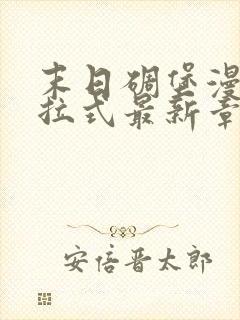 末日碉堡漫
拉式最新章
安倍晋太郎